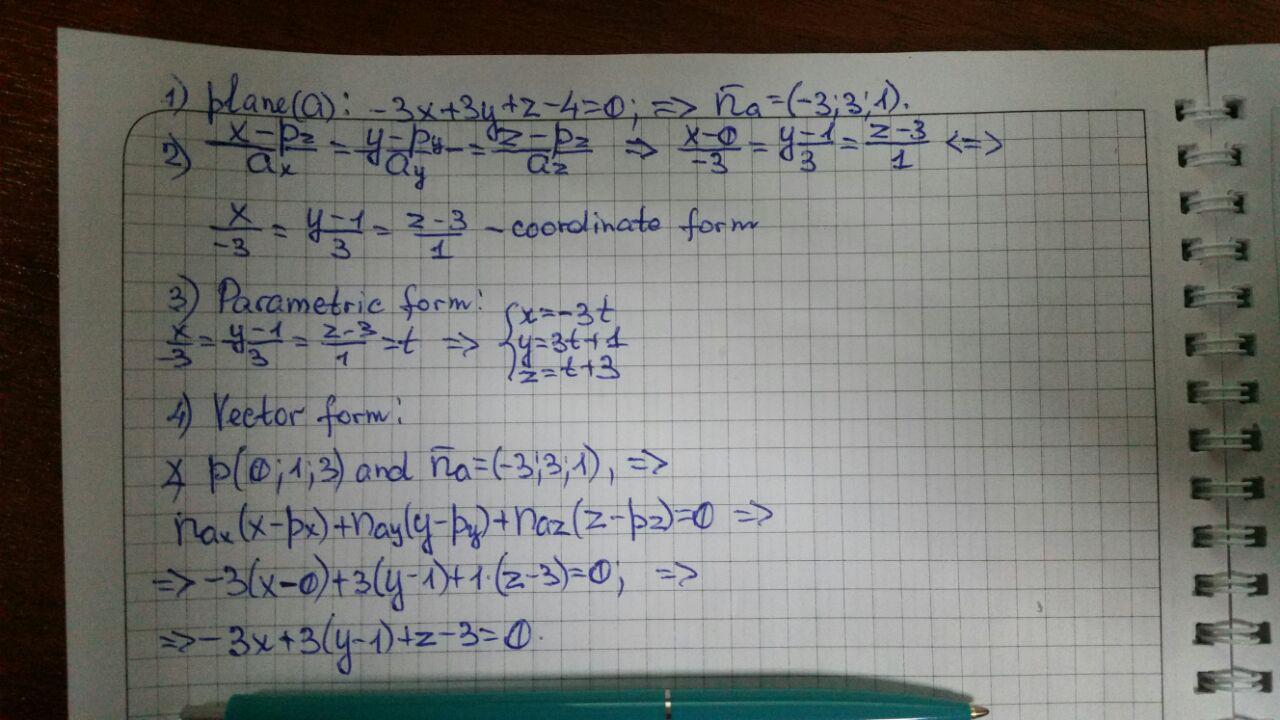 1) plane(a): -3x+3y+z-4=0; => n̄a=(-3;3;1).
2) (x-pz)/ax = (y-py)/ay = (z-pz)/az => (x-0)/-3 = (y-1)/3 = (z-3)/1 <=>
x/-3 = (y-1)/3 = (z-3)/1 - coordinate form
3) Parametric form:
x/-3 = (y-1)/3 = (z-3)/1 = t => { x=-3t
y=3t+1
z=t+3
4) Vector form:
p(0;1;3) and n̄a=(-3;3;1), =>
nax(x-px)+nay(y-py)+naz(z-pz)=0 =>
=> -3(x-0)+3(y-1)+1·(z-3)=0; =>
=> -3x+3(y-1)+z-3=0.